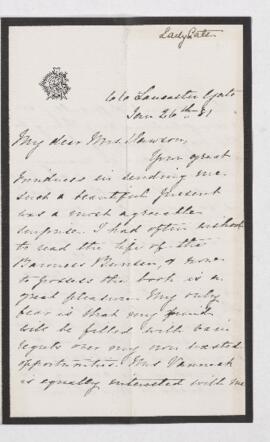 Lady Bate
66 Lancaster Gate
Jan 26th 81
My dear Mrs. Dawson,
Your great
kindness in sending me
such a beautiful present
was a most agreeable
surprise. I had often wished
to read the life of the
Baroness Bunsen, & now
to possess the book is a
great pleasure. My only
fear is that my mind
will be filled with vain
regrets over my own wasted
opportunities. Mrs
is equally interested with me